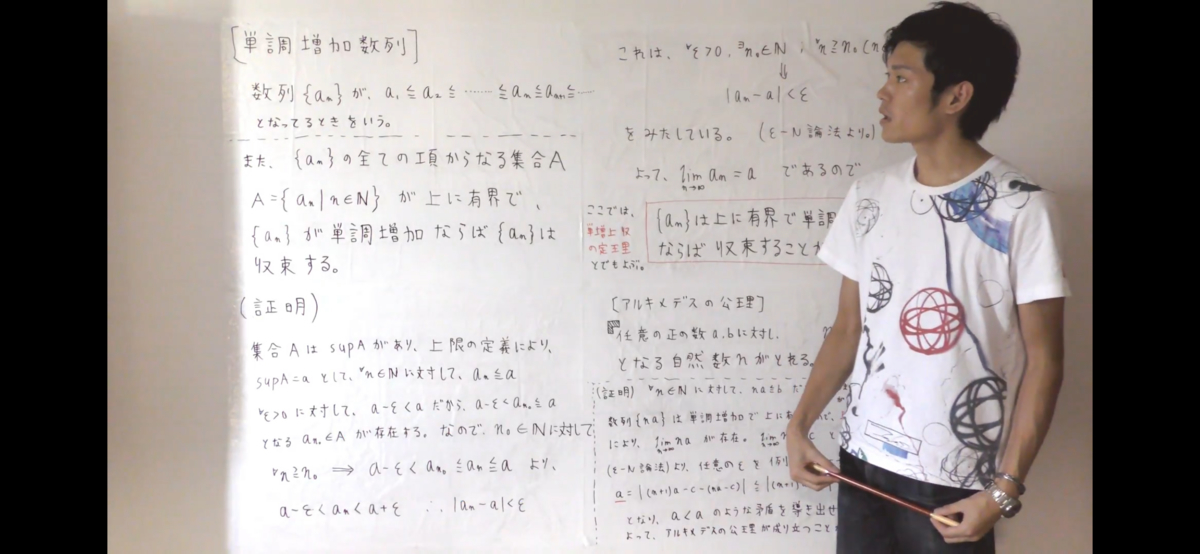 [単調増加数列]
数列{aₙ}が、a₁≦a₂≦……≦aₙ≦aₙ₊₁≦…
となってるときをいう。
また、{aₙ}の全ての項からなる集合A
A={aₙ|n∈N}が上に有界で、
{aₙ}が単調増加ならば{aₙ}は
収束する。
(証明)
集合AはsupAがあり、上限の定義により、
supA=aとして、∀n∈Nに対して、aₙ≦a
∀ε>0に対して、a-ε<aだから、a-ε<aₙ₀≦a
となるaₙ₀∈Aが存在する。なので、n₀∈Nに対して
∀n≧n₀ ⟹ a-ε<aₙ₀≦aₙ≦a より、
a-ε<aₙ<a+ε ∴|aₙ-a|<ε
これは、∀ε>0, ∃n₀∈N, ∀n≧n₀
⇓
|aₙ-a|<ε
をみたしている。(ε-N論法より。)
よって、lim aₙ=a であるので
n→∞
ここでは、
単増上収
の定理
とでもよぶ。
{aₙ}は上に有界で単調
ならば収束することが
[アルキメデスの公理]
任意の正の数a,bに対し、
となる自然数nがとれる。
(証明) ∀n∈Nに対して、na≦b だ
数列{na}は単調増加で上に有
により、lim na が存在。lim
n→∞
(ε-N論法)より、任意のεを
a=|(n+1)a-c-(na-c)|≦|(n+1)
となり、a<aのような矛盾を導き出せ
よって、アルキメデスの公理が成り立つこと